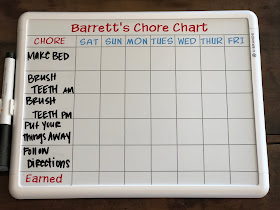 Barrett's Chore Chart
CHORE SAT SUN MON TUES WED THUR FRI
MAKE BED
BRUSH
TEETH AM
BRUSH
TEETH PM
PUT YOUR
THINGS AWAY
FOLLOW
DIRECTIONS
Earned